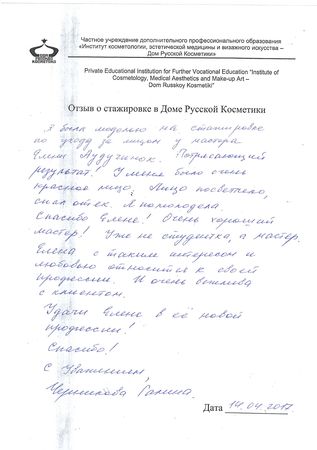 Частное учреждение дополнительного профессионального образования
«Институт косметологии, эстетической медицины и визажного искусства –
Дом Русской Косметики»
Private Educational Institution for Further Vocational Education "Institute of
Cosmetology, Medical Aesthetics and Make-up Art –
Dom Russkoy Kosmetiki"
Отзыв о стажировке в Доме Русской Косметики
Я была моделью на стажировке
по уходу за лицом у мастера
Елены. Потрясающий
результат! У меня было очень
красное лицо. Лицо посветлело,
спал отек. Я помолодела
Спасибо Елене! Очень хороший
мастер! Уже не студентка, а мастер.
Елена с таким интересом и
любовью относится к своей
профессии. И очень вежлива
с клиентом.
Удачи Елене в её новой
профессии!
Спасибо!
С Уважением,
Галина.
Дата 14.04.2017